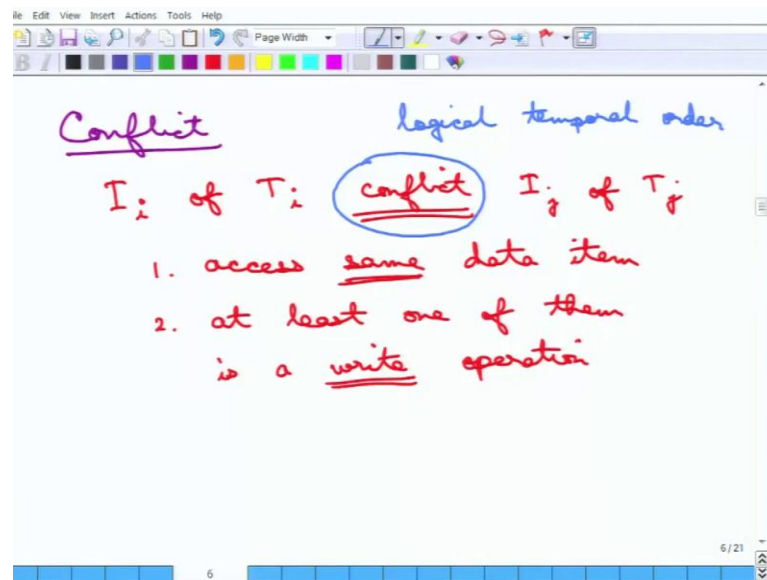 ile Edit View Insert Actions Tools Help
Page Width
B I
Conflict
logical temporal order
I_i of T_i conflict I_j of T_j
1. access same data item
2. at least one of them
is a write operation
6/21
6